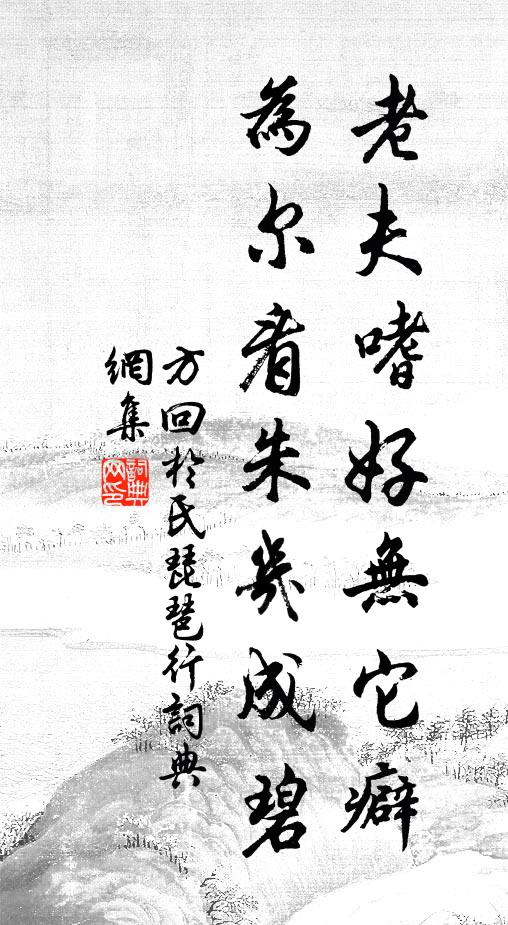 老夫嗜好無它癖
為尔看朱幾成碧
方回於氏琵琶行詞典
網集
詞典網印